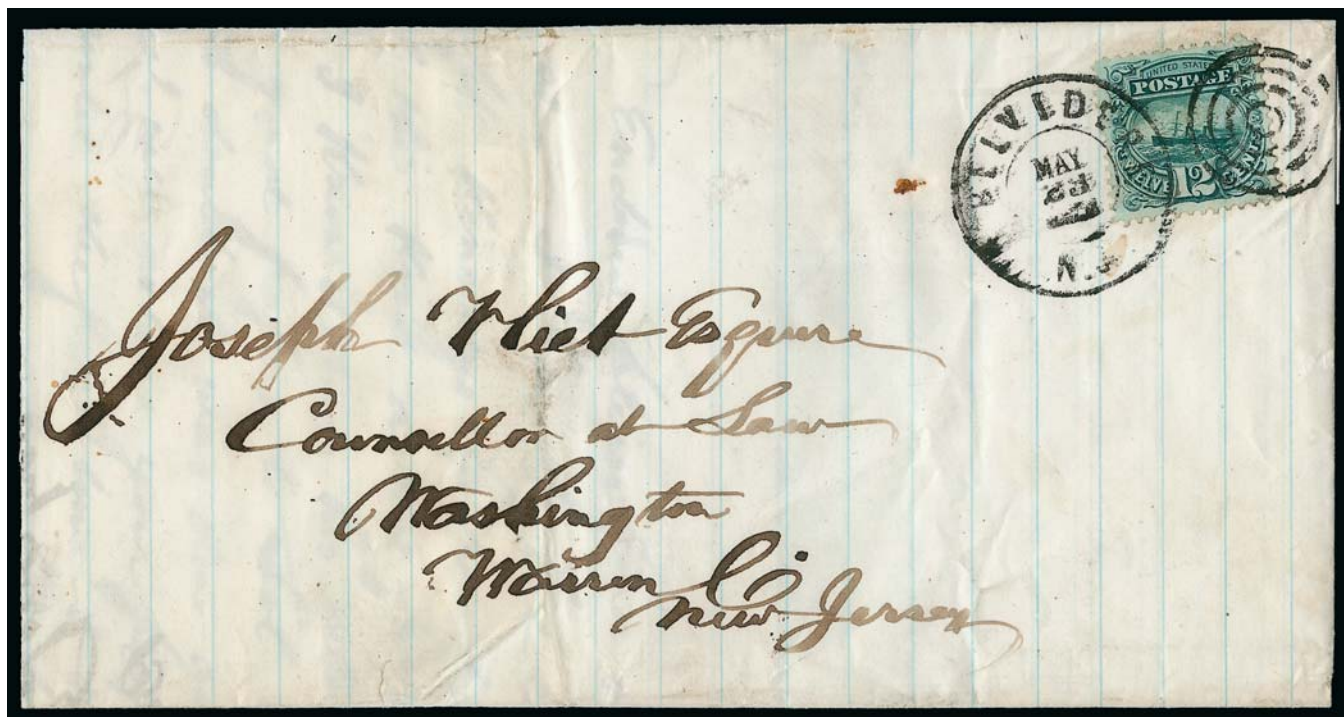 UNITED STATES
POSTAGE
TWELVE 12 CENTS
BELVIDERE
MAY
23
N.J.
Joseph Vliet Esquire
Counsellor at Law
Washington
Warren Co
New Jersey